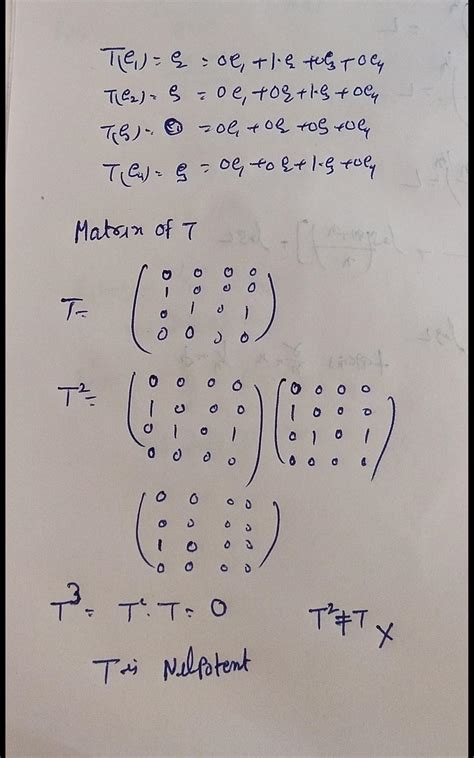 T(e₁) = e₂ = 0e₁ + 1·e₂ + 0e₃ + 0e₄
T(e₂) = e₃ = 0e₁ + 0e₂ + 1·e₃ + 0e₄
T(e₃) = 0 = 0e₁ + 0e₂ + 0e₃ + 0e₄
T(e₄) = e₃ = 0e₁ + 0e₂ + 1·e₃ + 0e₄
Matrix of T
T =
0 0 0 0
1 0 0 0
0 1 0 1
0 0 0 0
T² =
0 0 0 0 0 0 0 0
1 0 0 0 1 0 0 0
0 1 0 1 0 1 0 1
0 0 0 0 0 0 0 0
0 0 0 0
0 0 0 0
1 0 0 0
0 0 0 0
T³ = T²·T = 0 T² ≠ T X
T is Nelpotent